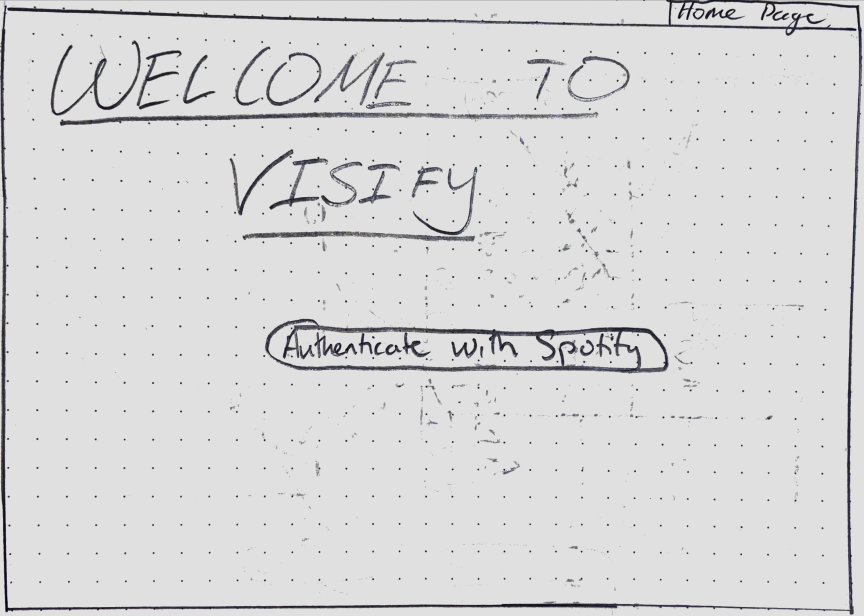 Home Page
WELCOME TO
VISIFY
Authenticate with Spotify